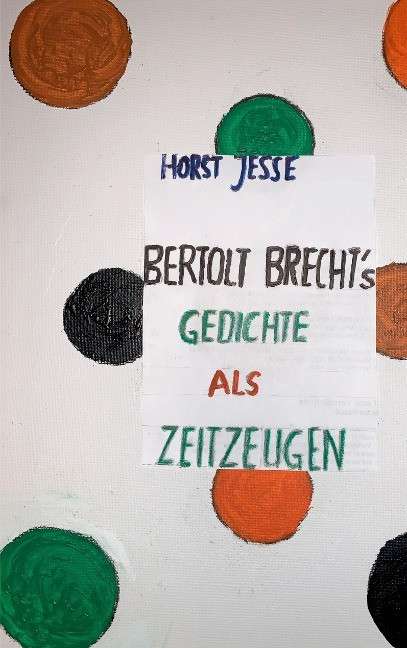 HORST JESSE
BERTOLT BRECHT's
GEDICHTE
ALS
ZEITZEUGEN